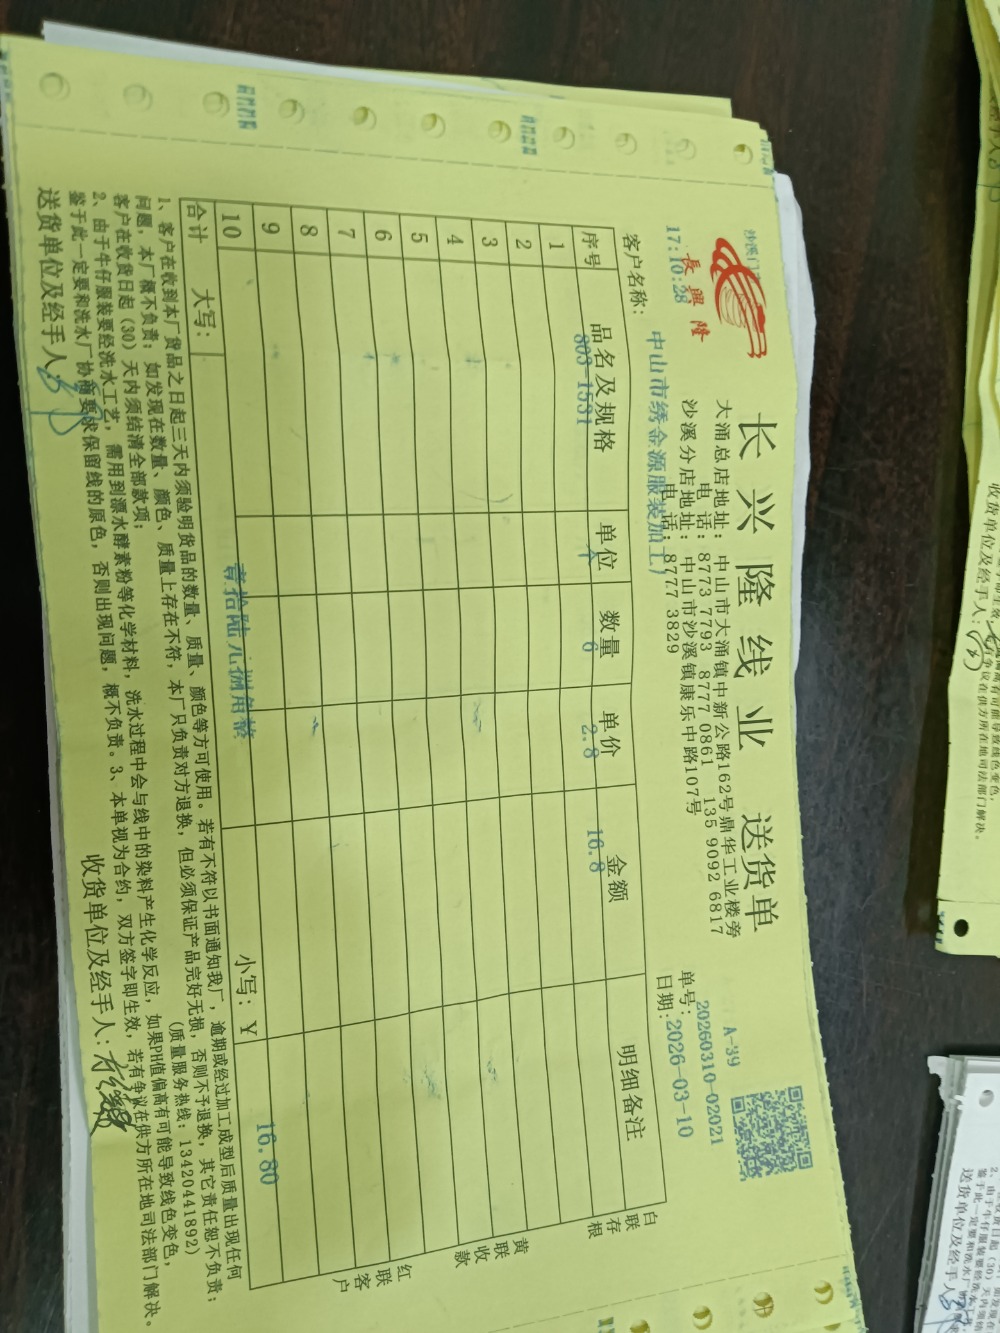 長興隆
沙溪门
17:10:28
长兴隆线业 送货单
大涌总店地址: 中山市大涌镇中新公路162号鼎华工业楼旁
电 话: 8773 7793 8777 0861 135 9092 6817
沙溪分店地址: 中山市沙溪镇康乐中路107号
电 话: 8777 3829
A-39
单号: 20260310-02021
日期: 2026-03-10
客户名称: 中山市绣金源服装加工厂
序号 品名及规格 单位 数量 单价 金额 明细备注
1 803-1531 个 6 2.8 16.8
2
3
4
5
6
7
8
9
10
合计 大写: 壹拾陆元捌角整 小写: Y 16.80
白联存根
黄联收款
红联客户
1、客户在收到本厂货品之日起三天内须验明货品的数量、质量、颜色等方可使用。若有不符以书面通知我厂, 逾期或经过加工成型后质量出现任何
问题, 本厂概不负责; 如发现在数量、颜色、质量上存在不符, 本厂只负责对方退换, 但必须保证产品完好无损, 否则不予退换, 其它责任恕不负责;
客户在收货日起(30)天内须结清全部款项; (质量服务热线: 13420441892)
2、由于牛仔服装要经洗水工艺, 需用到漂水酵素粉等化学材料, 洗水过程中会与线中的染料产生化学反应, 如果PH值偏高有可能导致线色变色,
鉴于此一定要和洗水厂协商要求保留线的原色, 否则出现问题, 概不负责。3、本单视为合约, 双方签字即生效, 若有争议在供方所在地司法部门解决。
送货单位及经手人:
收货单位及经手人:
收货单位及经手人:
争议在供方所在地司法部门解决。
送货单位及经手人: